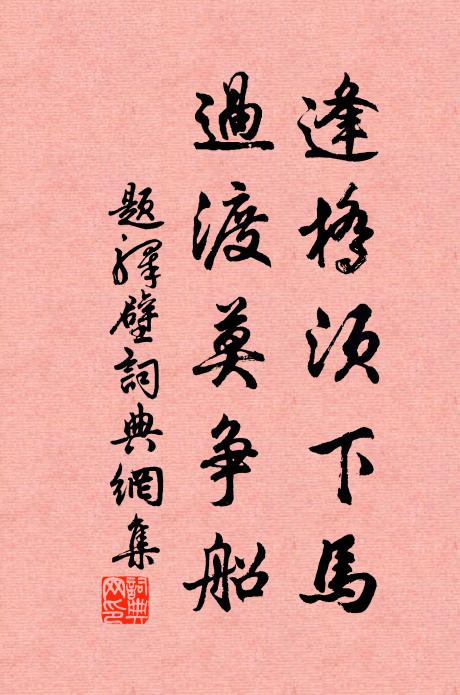 逢橋須下馬
過渡莫争船
題釋壁詞典網集
詞典網印